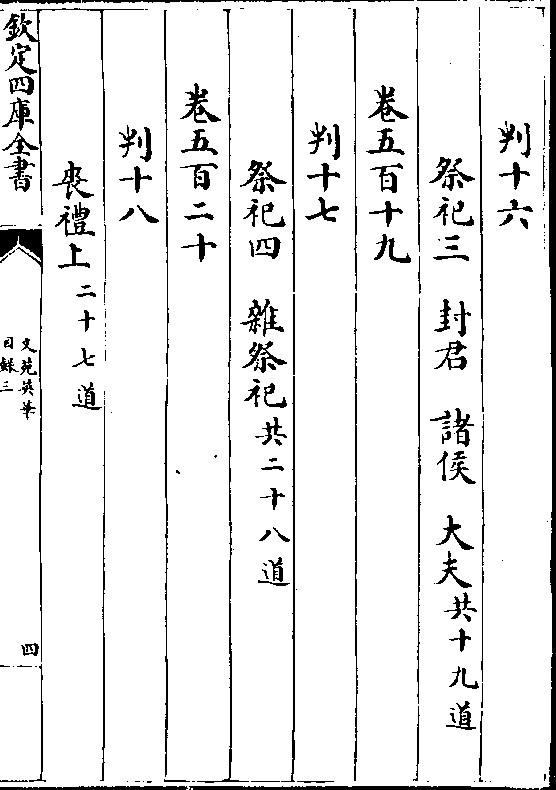 判十六
祭祀三　封君　諸侯　大夫共十九道
卷五百十九
判十七
祭祀四　雜祭祀共二十八道
卷五百二十
判十八
喪禮上二十七道
欽定四庫全書
文苑英華
目録三
四